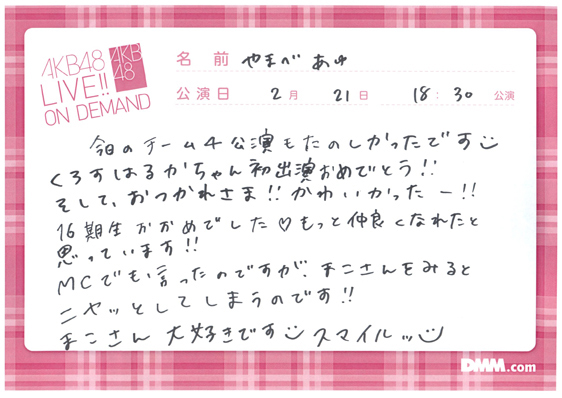 AKB48
LIVE!!
ON DEMAND
AKB
48
名前 やまべ あゆ
公演日 2月 21日 18:30 公演
今日のチーム4公演もたのしかったです
くろすはるかちゃん初出演おめでとう!!
そして、おつかれさま!! かわいかったー!!
16期生かかめでした♡もっと仲良くなれたと
思っています!!
MCでも言ったのですが、まこさんをみると
ニヤッとしてしまうのです!!
まこさん 大好きです スマイルッ
DMM.com